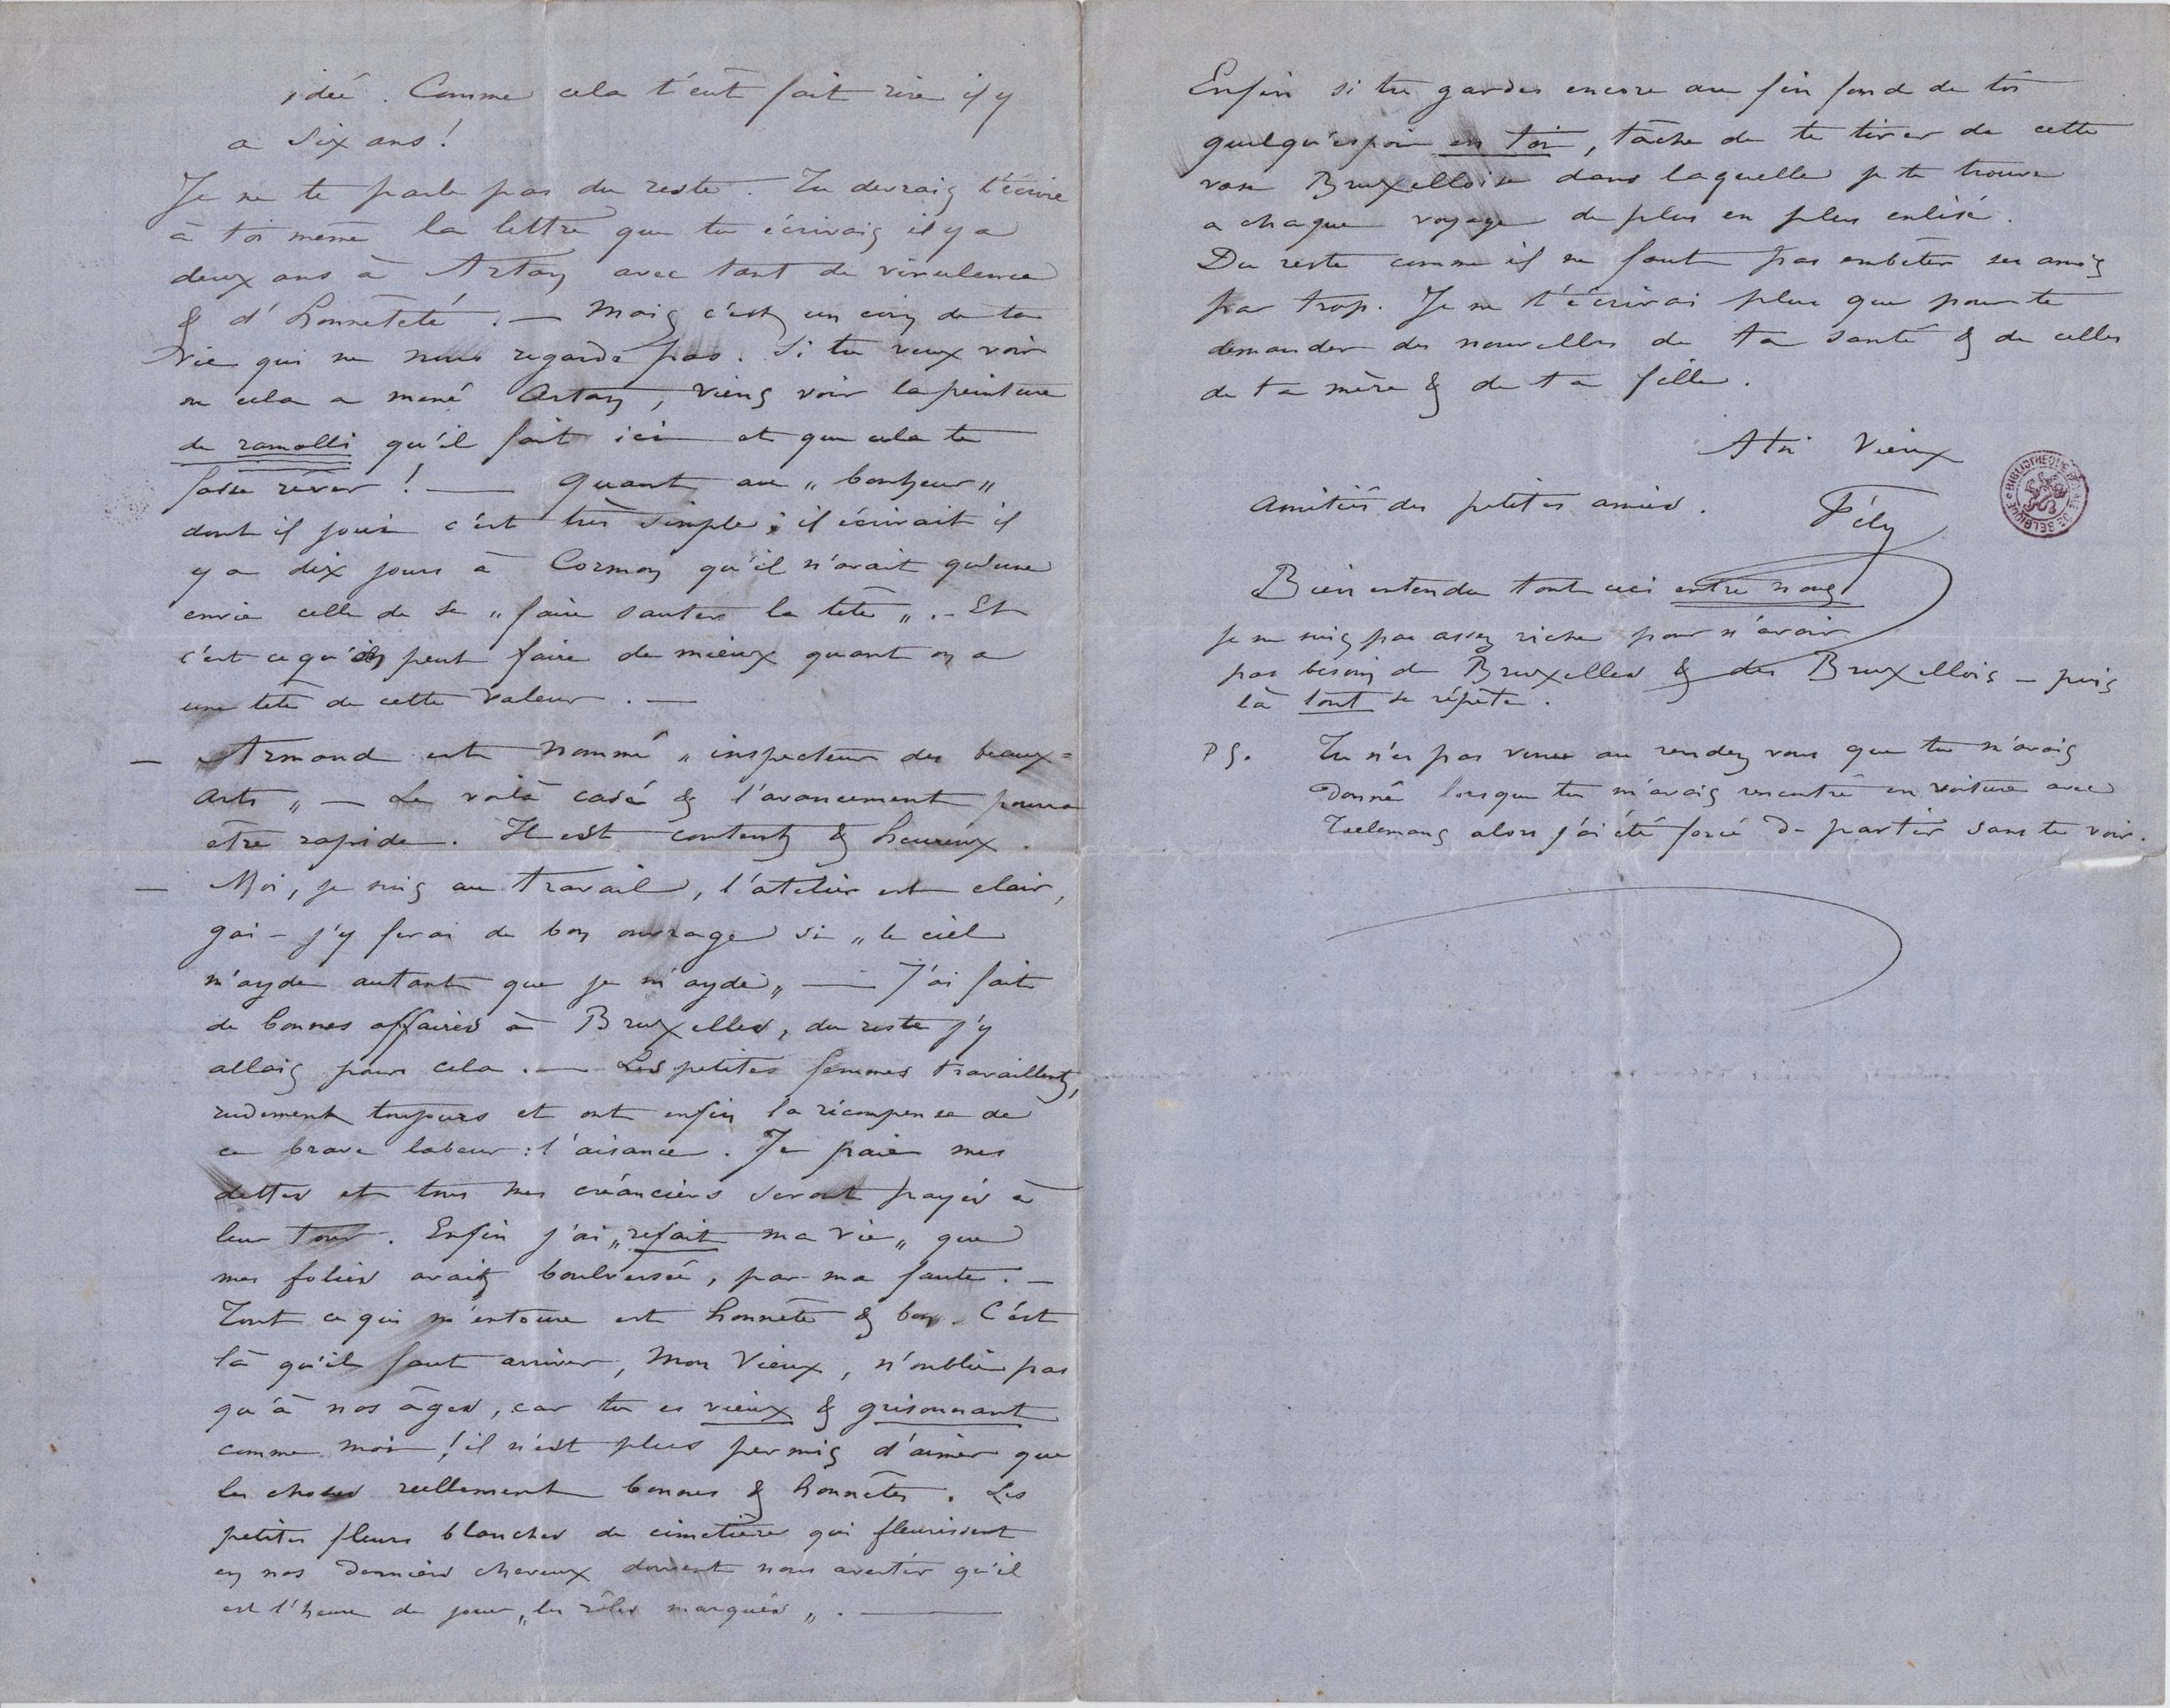 idée. Comme cela t'eut fait rire il y
a six ans !
Je ne te parle pas du reste. Tu devrais t'écrire
à toi même la lettre que tu écrivais il y a
deux ans à Artan avec tant de virulence
& d'honnêteté. — Mais c'est un coin de ta
vie qui ne nous regarde pas. Si tu veux voir
ou cela a mené Artan, viens voir la peinture
de ramolli qu'il fait ici et que cela te
fasse rêver ! — Quant au „ bonheur „
dont il jouit c'est très simple ; il écrivait il
y a dix jours à Cormon qu'il n'avait qu'une
envie celle de se „ faire sauter la tête „. – Et
c'est ce qu'on peut faire de mieux quant on a
une tête de cette valeur. —
— Armand est nommé „ inspecteur des beaux=
arts „ — Le voilà casé & l'avancement pourra
être rapide. Il est content & heureux.
— Moi, je suis au travail, l'atelier est clair,
gai – j'y ferai de bon ouvrage si „ le ciel
m'ayde autant que je m'ayde „ — J'ai fait
de bonnes affaires à Bruxelles, du reste j'y
allais pour cela. — Les petites femmes travaillent,
rudement toujours et ont enfin la récompense de
ce brave labeur : l'aisance. Je paie mes
dettes et tous mes créanciers seront payés à
leur tour. Enfin j'ai „ refait ma vie „ que
mes folies avait boulversée, par ma faute. –
Tout ce qui m'entoure est honnête & bon. C'est
là qu'il faut arriver, mon Vieux, n'oublie pas
qu'à nos âges, car tu es vieux & grisonnant
comme moi ! il n'est plus permis d'aimer que
les choses reellement bonnes & honnêtes. Les
petites fleurs blanches de cimetière qui fleurissent
en nos derniers cheveux doivent nous avertir qu'il
est l'heure de jouer „ les rôles marqués „. —
Enfin si tu gardes encore au fin fond de toi
quelqu'espoir en toi, tâche de te tirer de cette
vase Bruxelloise dans laquelle je te trouve
a chaque voyage de plus en plus enlisé.
Du reste comme il ne faut pas embêter ses amis
par trop. Je ne t'écrirai plus que pour te
demander des nouvelles de ta santé & de celles
de ta mère & de ta fille.
A toi Vieux
Amitiés des petites amies.
Fély
BIBLIOTHEQUE ROYALE DE BELGIQUE
Bien entendu tout ceci entre nous
Je ne suis pas assez riche pour n'avoir
pas besoin de Bruxelles & des Bruxellois – puis
là tout se répète.
PS. Tu n'es pas venu au rendez vous que tu m'avais
donné lorsque tu m'avais rencontré en voiture avec
alors j'ai été forcé de partir sans te voir.